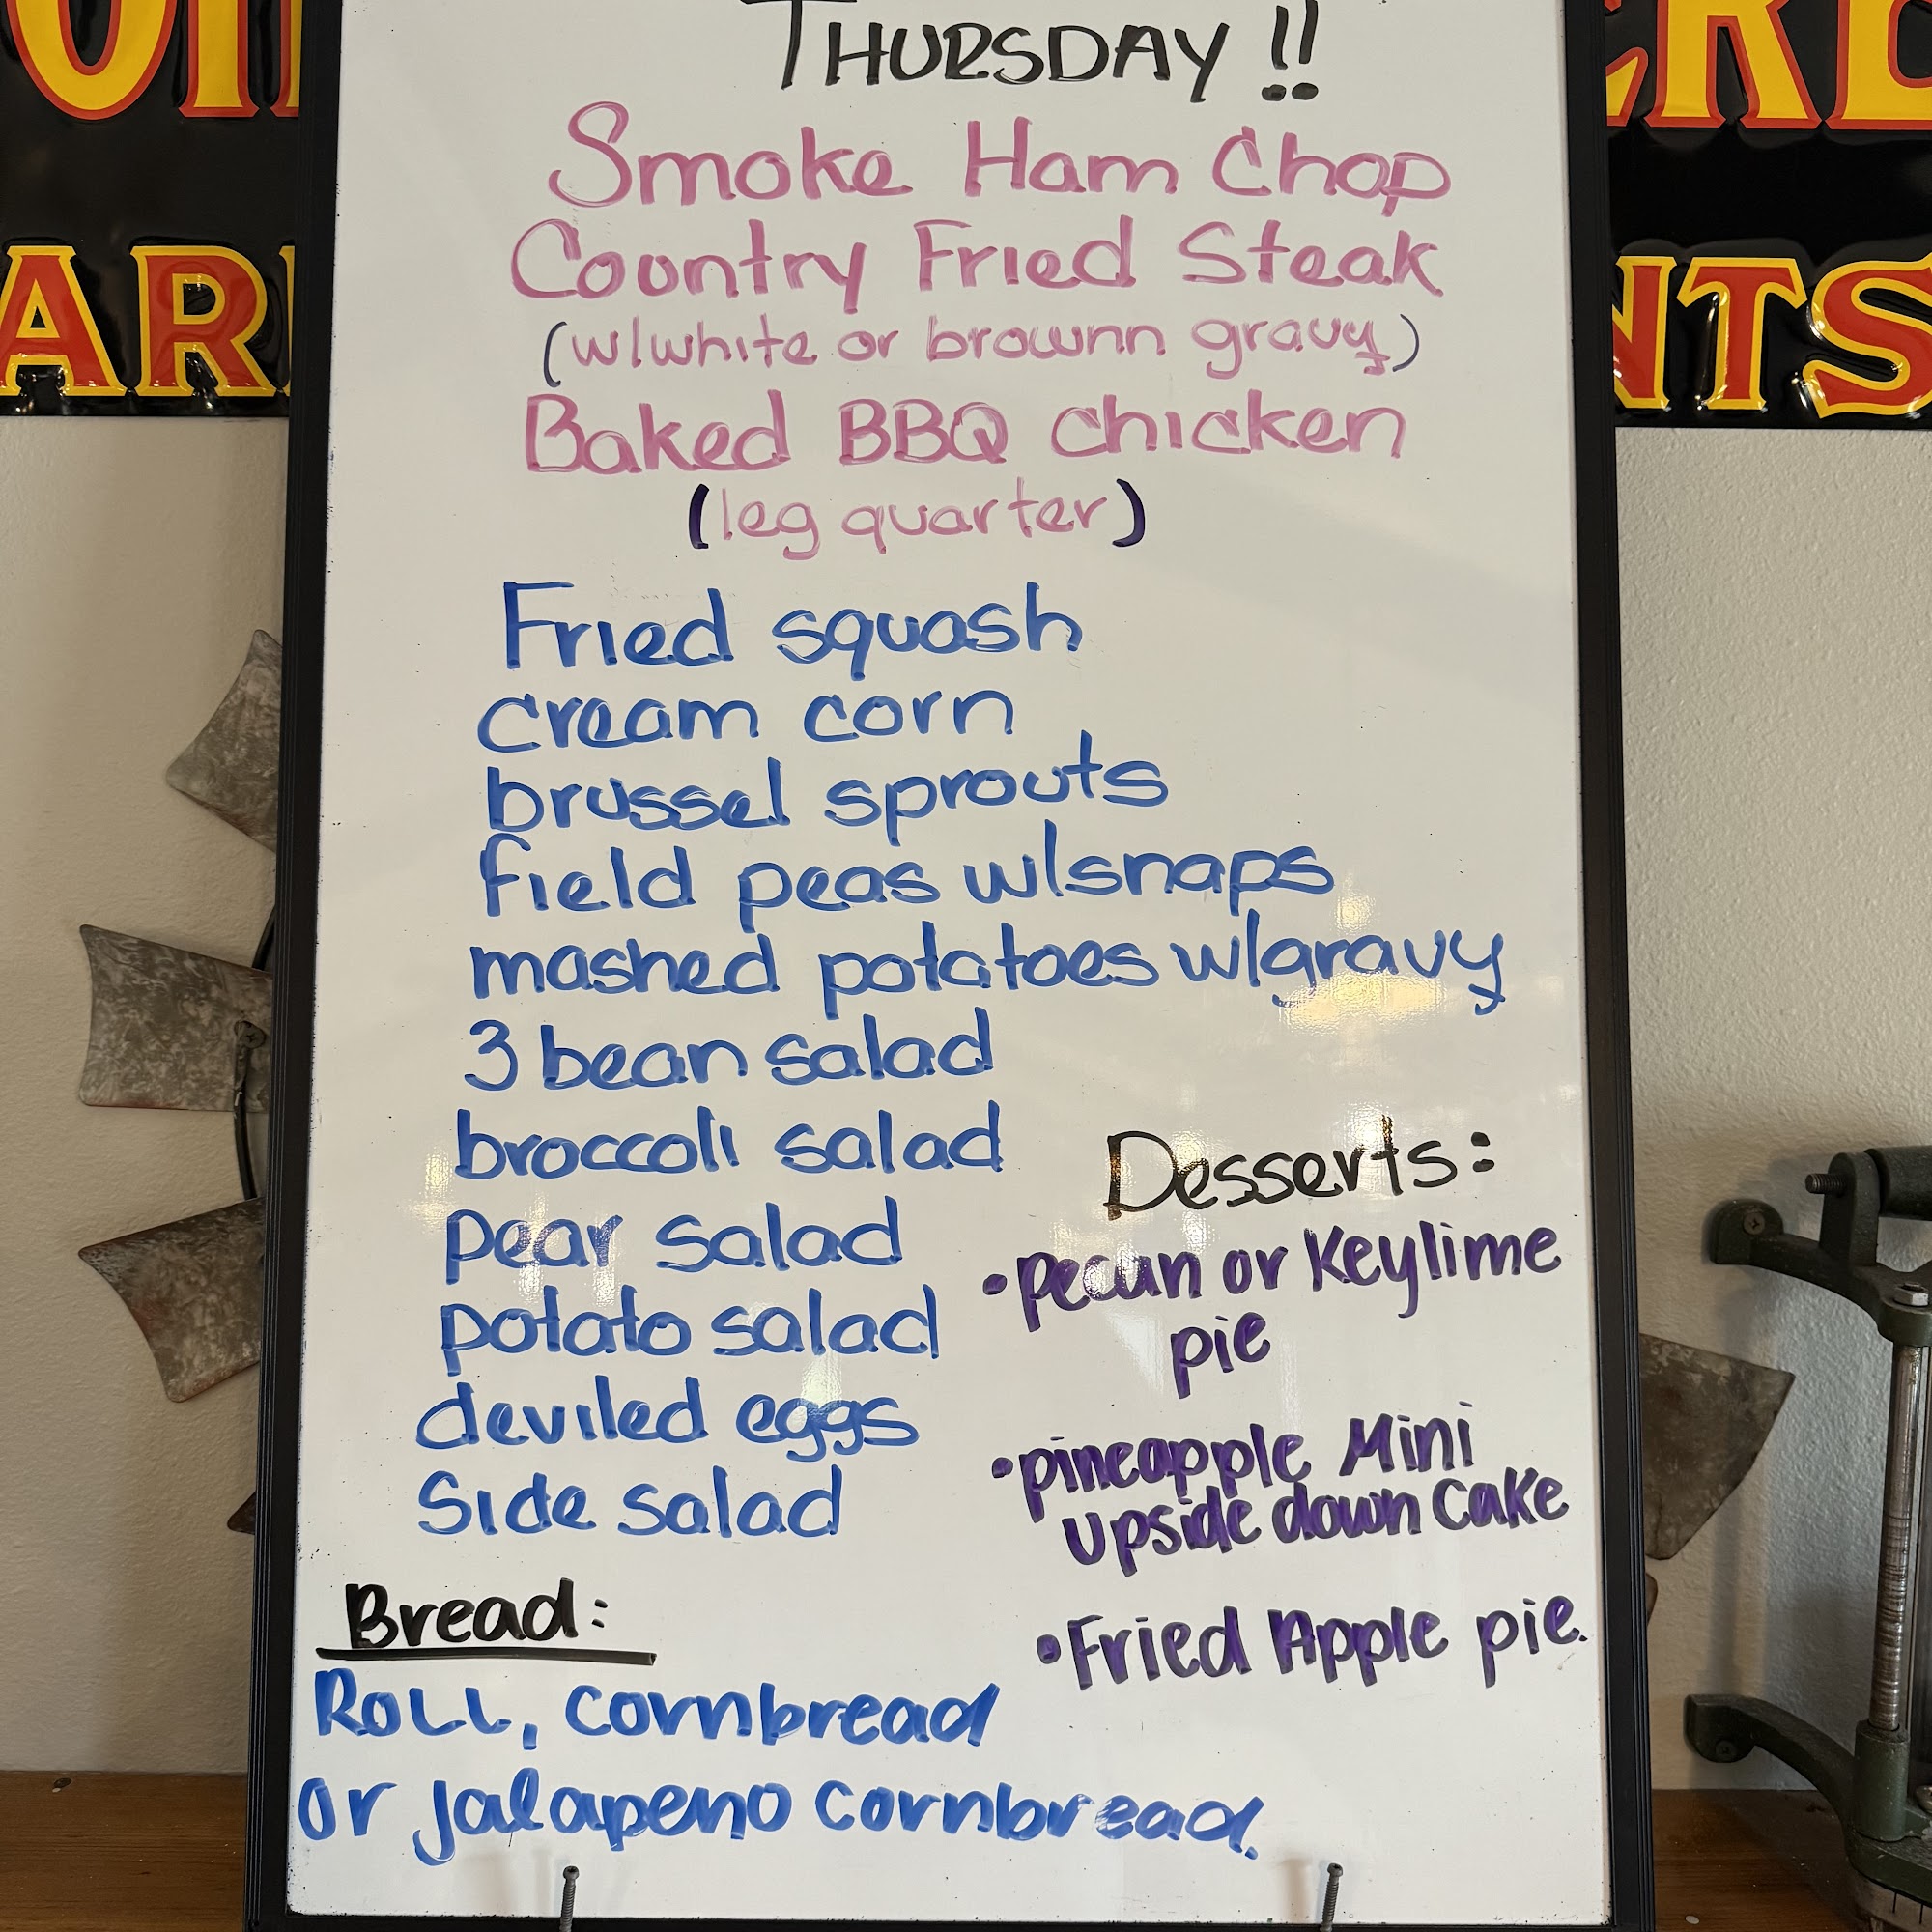 THURSDAY !!
Smoke Ham Chop
Country Fried Steak
(w/white or brownn gravy)
Baked BBQ chicken
(leg quarter)
Fried squash
cream corn
brussel sprouts
field peas w/snaps
mashed potatoes w/gravy
3 bean salad
broccoli salad
pear salad
potato salad
deviled eggs
Side salad
Desserts:
•pecan or Keylime
pie
•pineapple Mini
upside down Cake
•Fried Apple pie.
Bread:
Roll, cornbread
or jalapeno cornbread.